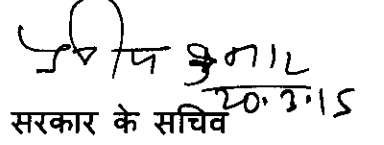 प्रदीप कुमार
20.3.15
सरकार के सचिव